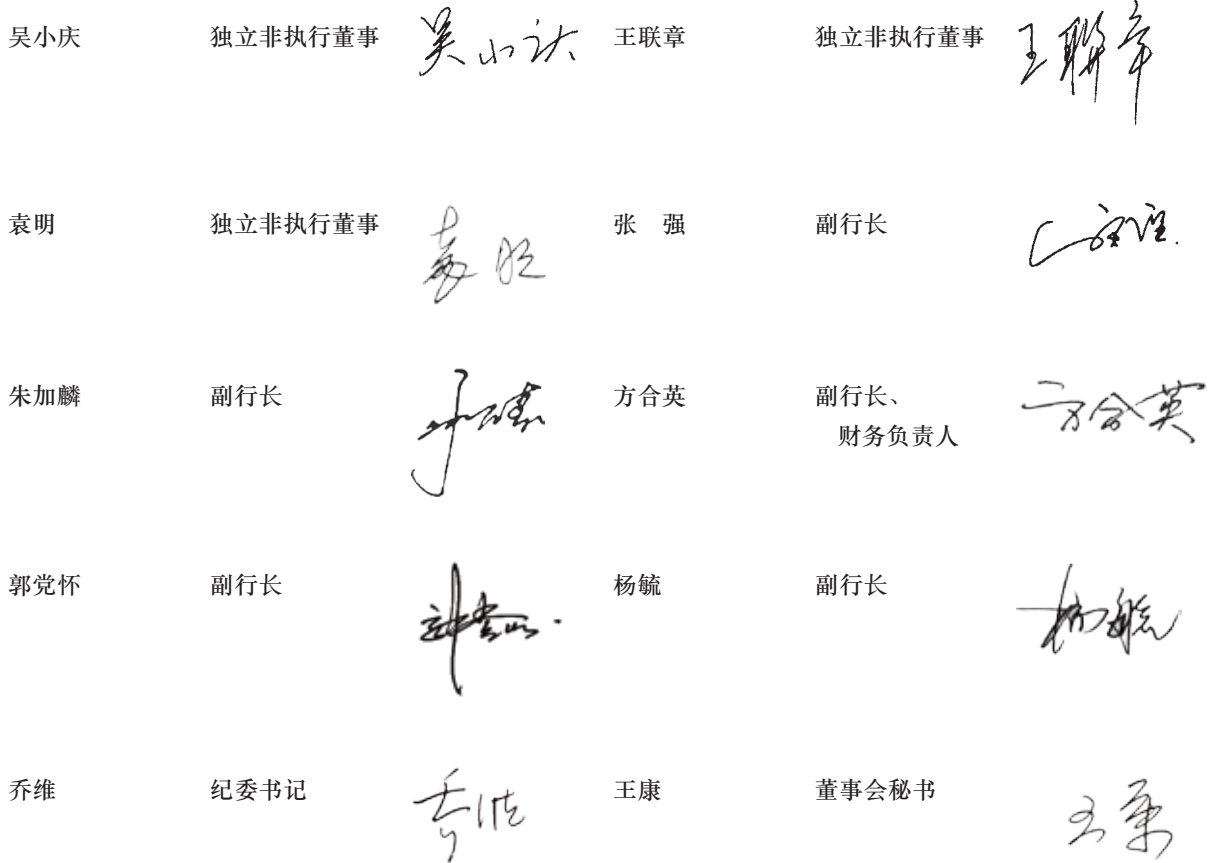 吴小庆 独立非执行董事 吴小庆 王联章 独立非执行董事 王聯章
袁明 独立非执行董事 袁明 张 强 副行长
朱加麟 副行长 方合英 副行长、 方合英
财务负责人
郭党怀 副行长 杨毓 副行长 杨毓
乔维 纪委书记 乔维 王康 董事会秘书 王康